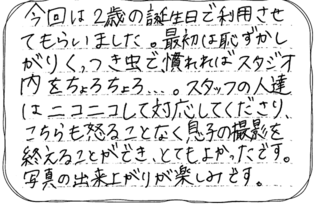 今回は2歳の誕生日で利用させ
てもらいました。最初は恥ずかし
がりくっつき虫で、慣れればスタジオ
内をちょろちょろ...。スタッフの人達
はニコニコして対応してくださり、
こちらも怒ることなく息子の撮影を
終えることができ、とてもよかったです。
写真の出来上がりが楽しみです。